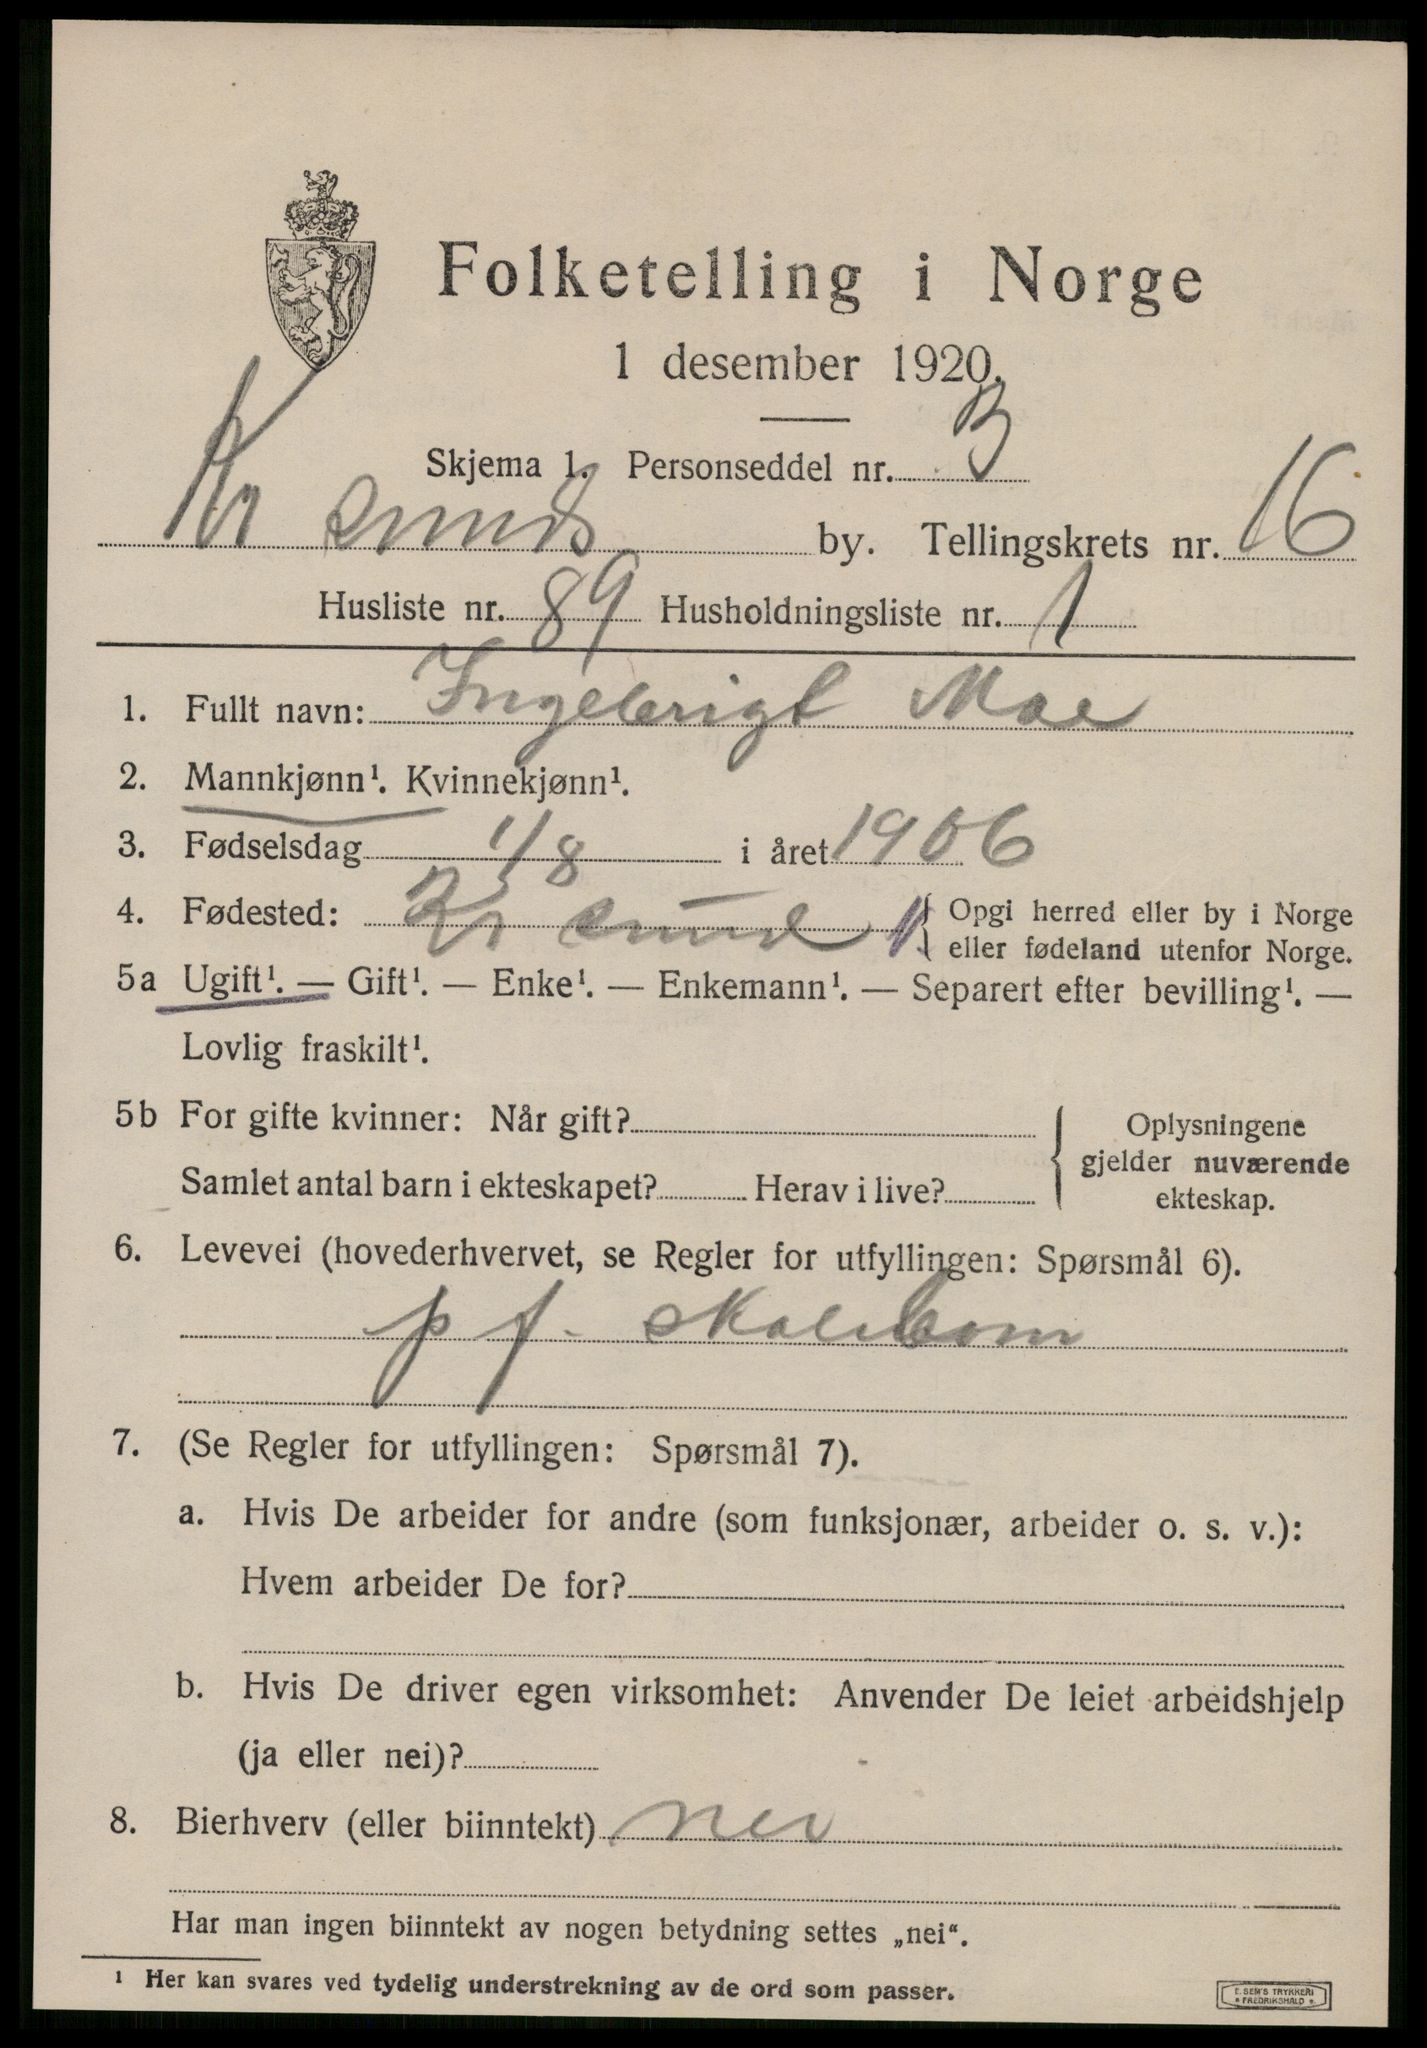 Folketelling i Norge
1 desember 1920.
Skjema 1. Personseddel nr. 3
Kr sunds by. Tellingskrets nr. 16
Husliste nr. 89 Husholdningsliste nr. 1
1. Fullt navn: Ingebrigt Moe
2. Mannkjønn¹. Kvinnekjønn¹.
3. Fødselsdag 1/8 i året 1906
4. Fødested: Kr sund { Opgi herred eller by i Norge
eller fødeland utenfor Norge.
5a Ugift¹. — Gift¹. — Enke¹. — Enkemann¹. — Separert efter bevilling¹. —
Lovlig fraskilt¹.
5b For gifte kvinner: Når gift? { Oplysningene
gjelder nuværende
Samlet antal barn i ekteskapet? Herav i live?
ekteskap.
6. Levevei (hovederhvervet, se Regler for utfyllingen: Spørsmål 6).
p f. skole
7. (Se Regler for utfyllingen: Spørsmål 7).
a. Hvis De arbeider for andre (som funksjonær, arbeider o. s. v.):
Hvem arbeider De for?
b. Hvis De driver egen virksomhet: Anvender De leiet arbeidshjelp
(ja eller nei)?
8. Bierhverv (eller biinntekt) nei
Har man ingen biinntekt av nogen betydning settes „nei“.
¹ Her kan svares ved tydelig understrekning av de ord som passer.
E. SEM'S TRYKKERI
FREDRIKSHALD